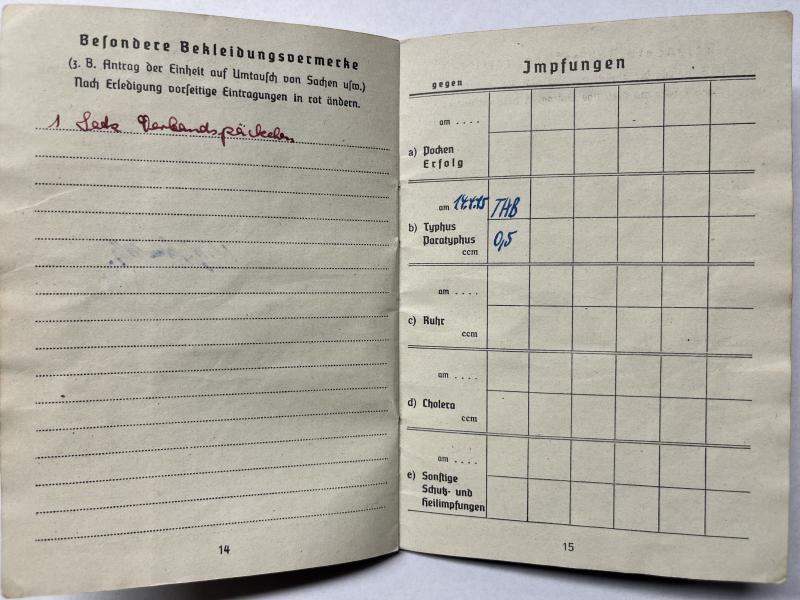 Besondere Bekleidungsvermerke
(z. B. Antrag der Einheit auf Umtausch von Sachen usw.)
Nach Erledigung vorseitige Eintragungen in rot ändern.
1 Satz Verbandspäckchen
14
Impfungen
gegen
am . . . .
a) Pocken
Erfolg
am THB
b) Typhus
Paratyphus 0,5
ccm
am . . . .
c) Ruhr
ccm
am . . . .
d) Cholera
ccm
am . . . .
e) Sonstige
Schutz- und
Heilimpfungen
15